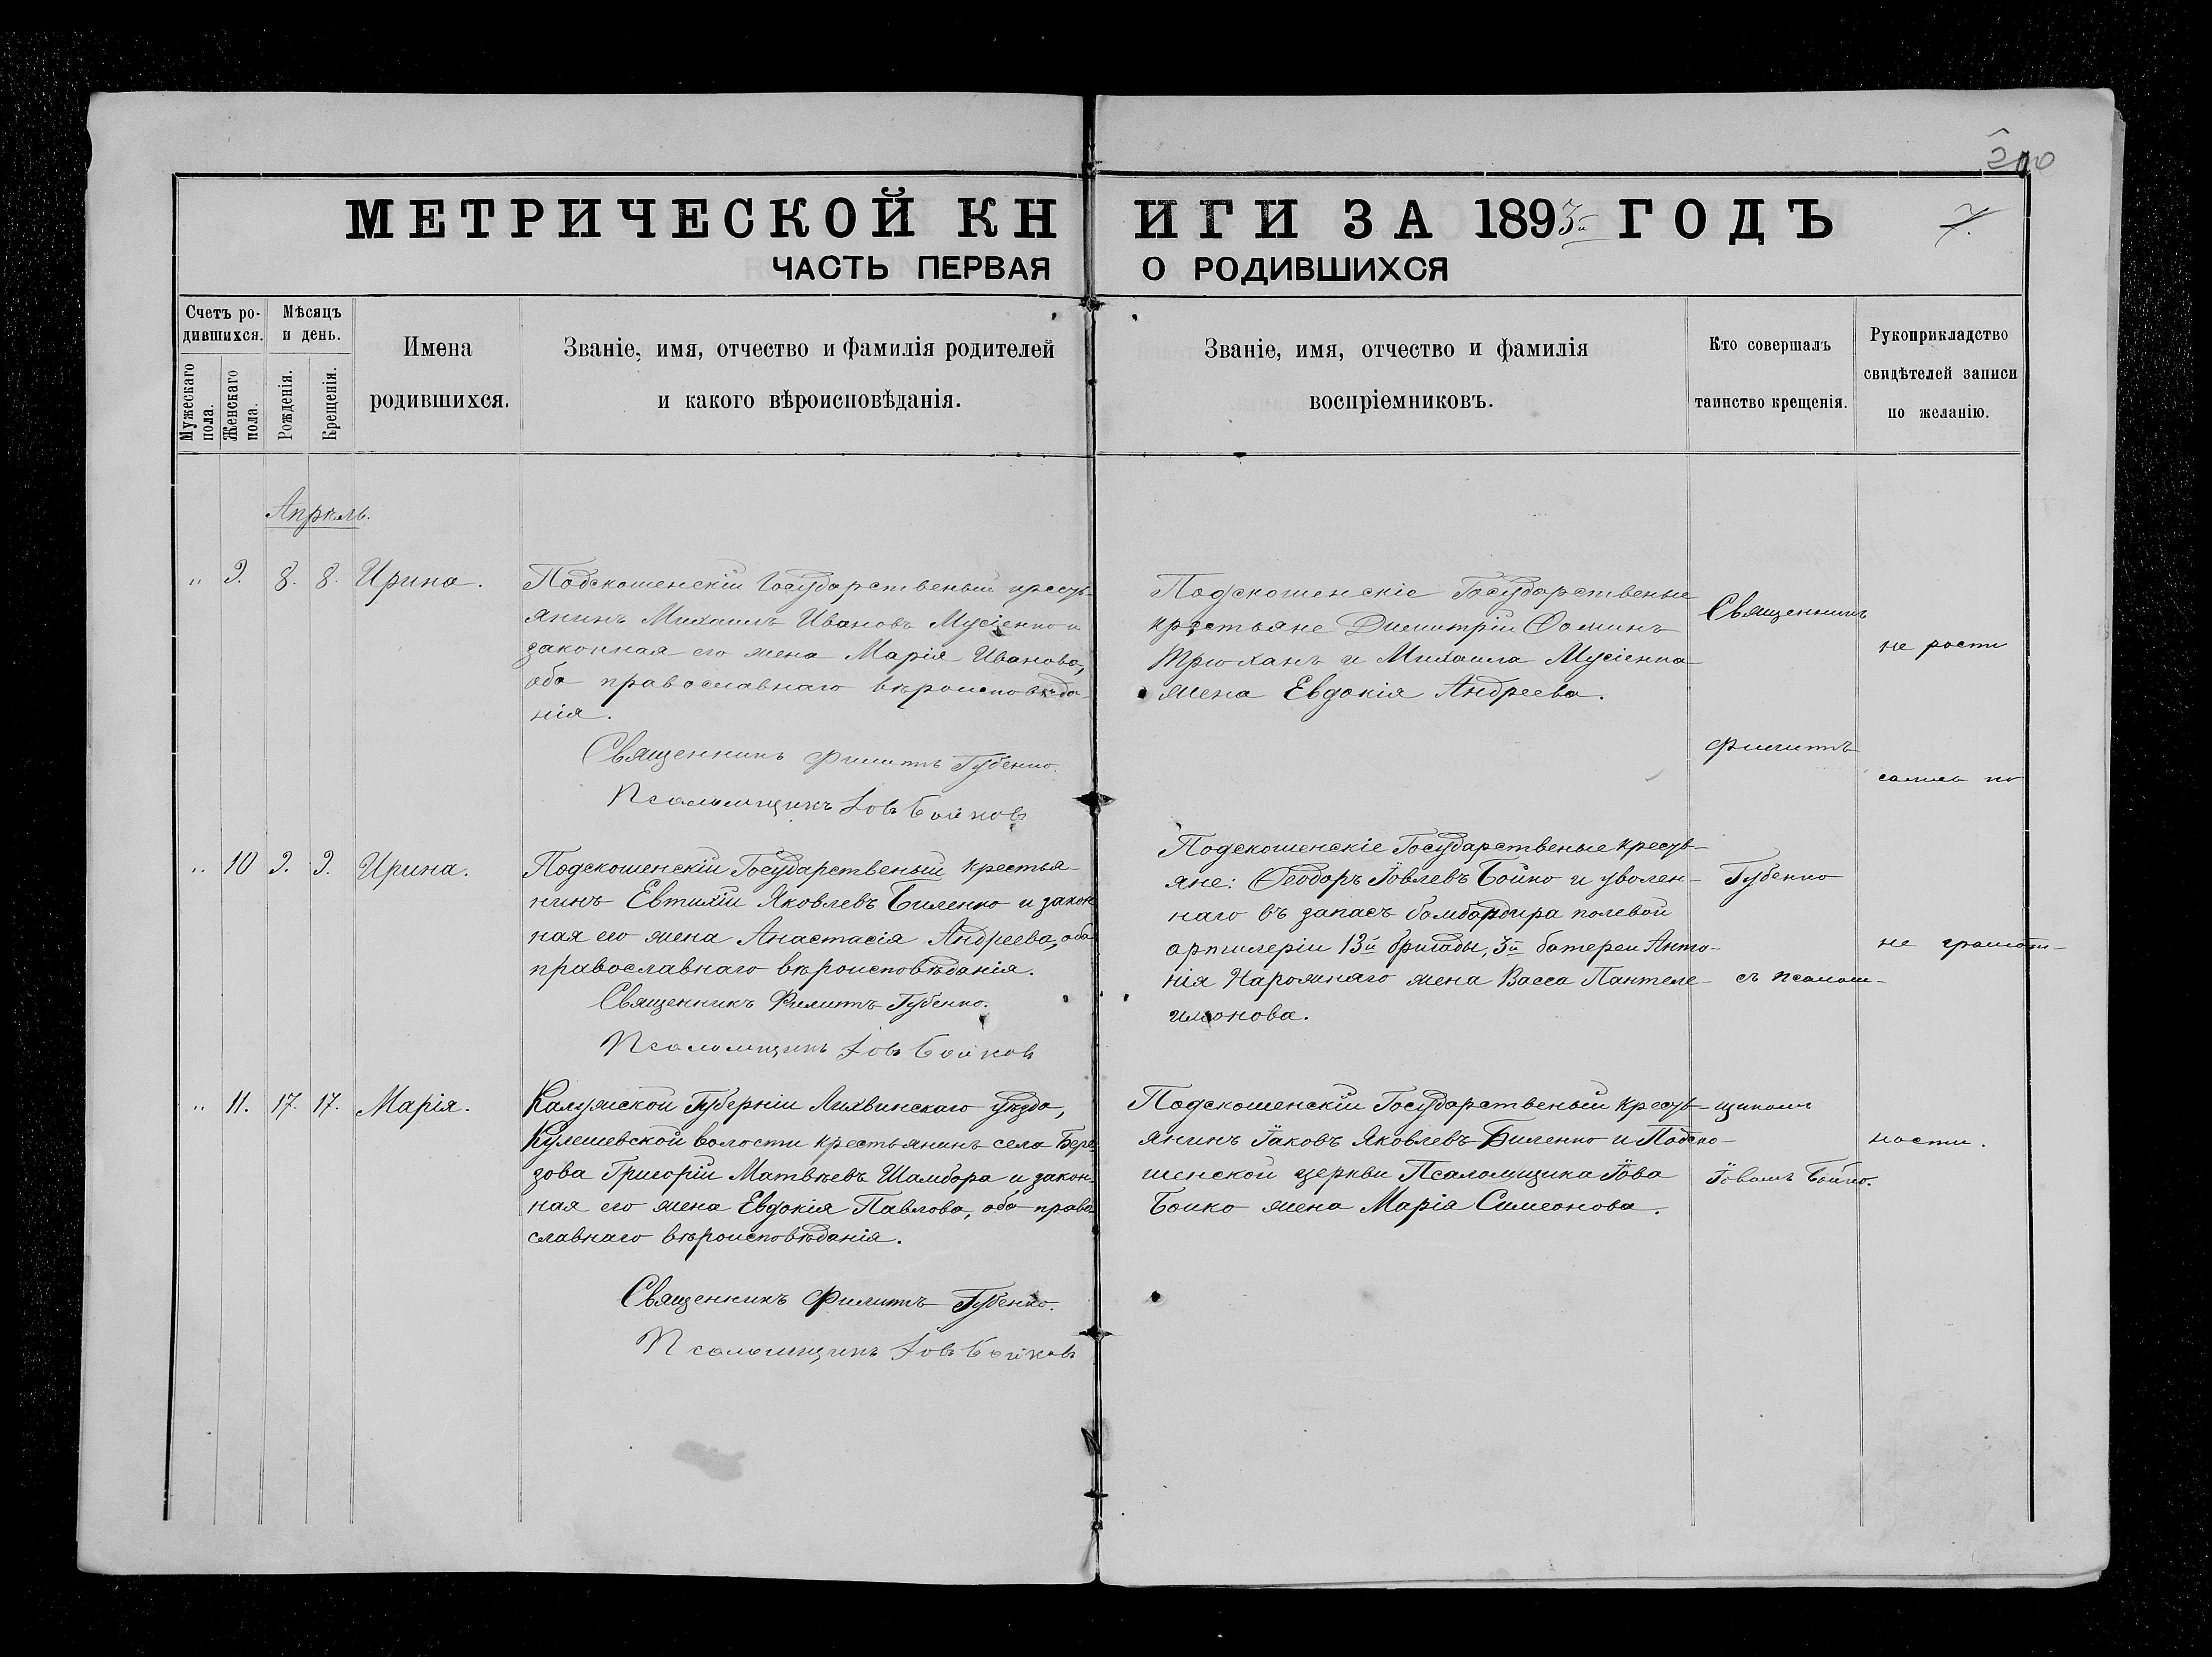 200
МЕТРИЧЕСКОЙ КН
ИГИ ЗА 1893й ГОДЪ
7.
ЧАСТЬ ПЕРВАЯ
О РОДИВШИХСЯ
Счетъ ро-
дившихся.
Мужескаго
пола.
Женскаго
пола.
Мѣсяцъ
и день.
Рожденія.
Крещенія.
Имена
родившихся.
Званіе, имя, отчество и фамилія родителей
и какого вѣроисповѣданія.
Званіе, имя, отчество и фамилія
воспріемниковъ.
Кто совершалъ
таинство крещенія.
Рукоприкладство
свидѣтелей записи
по желанію.
Апрѣль.
" 9. 8. 8. Ирина.
Подскошенскій Государственый кресть-
янинъ Михаилъ Ивановъ Мусіенко и
законная его жена Марія Иванова,
оба православнаго вѣроисповѣда-
нія.
Священникъ Филиппъ Губенко.
Псаломщикъ Іовъ Бойковъ
Подскошенскіе Государственые
крестьяне Димитрій Фоминъ
Трюханъ и Михаила Мусіенка
жена Евдокія Андреева.
" 10 9. 9. Ирина.
Подскошенскій Государственый крестья-
нинъ Евтихій Яковлевъ Биленко и закон
ная его жена Анастасія Андреева, оба
православнаго вѣроисповѣданія.
Священникъ Филиппъ Губенко.
Псаломщикъ Іовъ Бойковъ
Подскошенскіе Государственые кресть-
яне: Ѳеодоръ Іовлевъ Бойко и уволен-
наго въ запасъ бомбардира полевой
артилеріи 13й бригады, 3й батереи Анто-
нія Нарожняго жена Васса Пантеле-
имонова.
" 11. 17. 17. Марія.
Калужской Губерніи Лихвинскаго уѣзда,
Кулешевской волости крестьянинъ села Бере-
зова Григорій Матвѣевъ Шамбора и закон-
ная его жена Евдокія Павлова, оба право-
славнаго вѣроисповѣданія.
Священникъ Филиппъ Губенко.
Псаломщикъ Іовъ Бойковъ
Подскошенскій Государственый кресть-
янинъ Іаковъ Яковлевъ Биленко и Подско-
шенской церкви Псаломщика Іова
Бойко жена Марія Симеонова.
Священникъ
Филиппъ
Губенко
съ псалом-
щикомъ
Іовомъ Бойко.
не грамот-
ности.